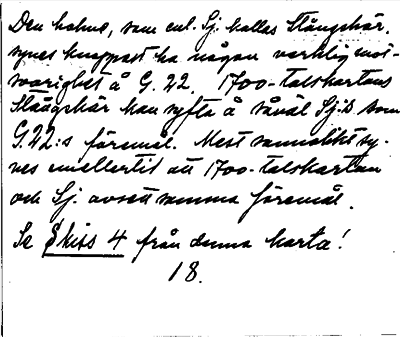 Den holme, som enl. Sj. kallas Stångskär,
synes knappast ha någon verklig mot-
svarighet å G. 22. 1700-talskartans
Stångskär kan syfta å såväl Sj:s som
G.22:s föremål. Mest sannolikt sy-
nes emellertid att 1700-talskartan
och Sj. avsett samma föremål.
Se Skiss 4 från denna karta!
18.